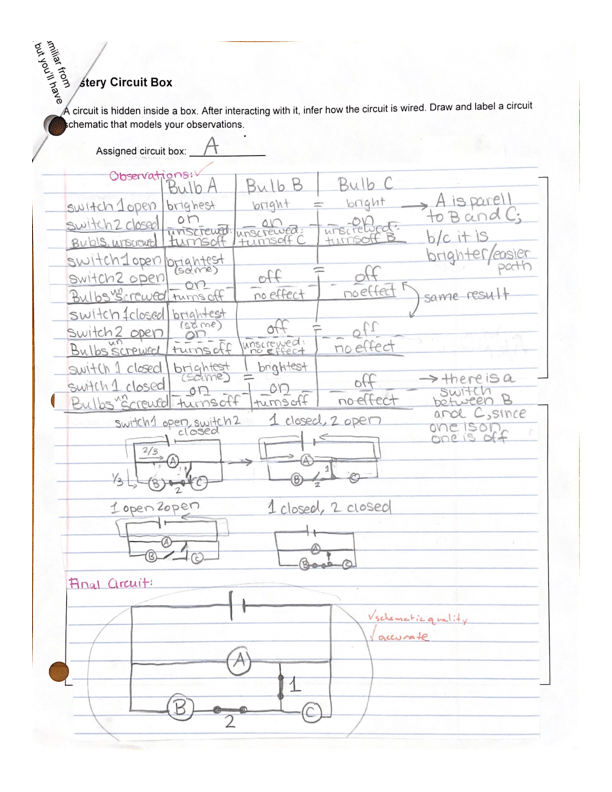 amiliar from
but you'll have
stery Circuit Box
A circuit is hidden inside a box. After interacting with it, infer how the circuit is wired. Draw and label a circuit
schematic that models your observations.
Assigned circuit box: A
Observations:
Bulb A Bulb B Bulb C
switch 1 open brighest bright = bright → A is parell
switch 2 closed on on on to B and C;
Bubls unscrued unscrewed: turns off unscrewed: turns off C unscrewed: turns off B b/c it is
switch 1 open brightest brighter/easier
(same) path
switch 2 open on off = off
Bulbs unscrewed turns off no effect no effect same result
switch 1 closed brightest
(same)
switch 2 open on off = off
Bulbs unscrewed turns off unscrewed: no effect no effect
switch 1 closed brightest brightest
(same) =
switch 1 closed on on off → there is a
Bulbs unscrewd turns off turns off no effect switch
between B
and C, since
one is on
one is off
switch 1 open, switch 2
closed
1 closed, 2 open
2/3 A
1/3 B 2 C
A 1
B 2 C
1 open 2 open 1 closed, 2 closed
A
B C
A
B C
Final Circuit:
✓schematic quality
✓accurate
A
1
B 2 C